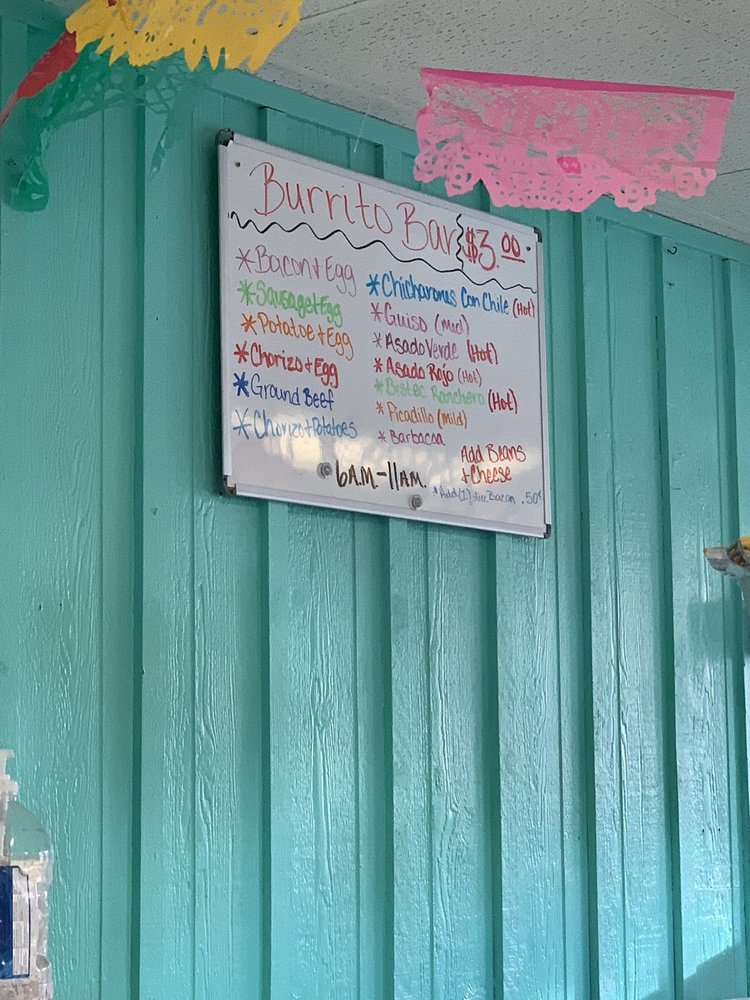 Burrito Bar $3.00
*Bacon + Egg
*Sausage + Egg
*Potatoe + Egg
*Chorizo + Egg
*Ground Beef
*Chorizo + Potatoes
*Chicharonus Con Chile (Hot)
*Guiso (mild)
*Asado Verde (Hot)
*Asado Rojo (Hot)
*Bistec Ranchero (Hot)
*Picadillo (mild)
*Barbacoa
Add Beans
+ Cheese
*Add (1) slice Bacon .50¢
6A.M.-11AM.